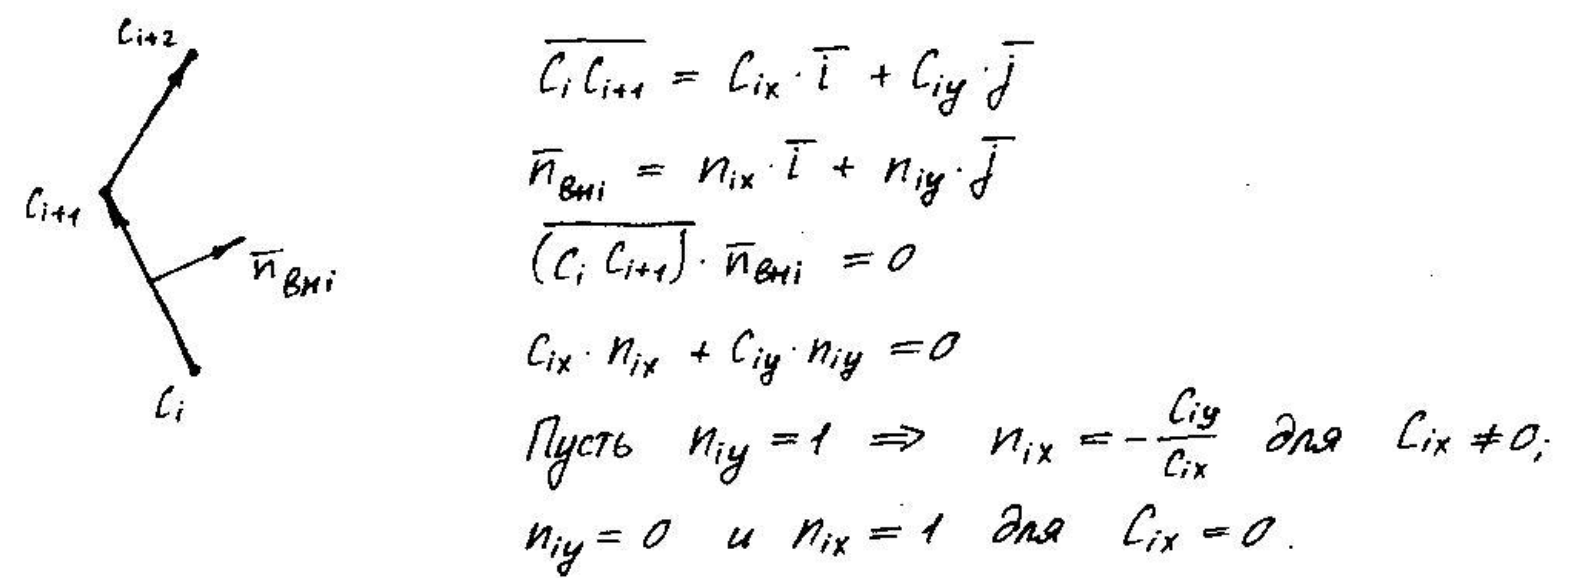 C_{i+2}
C_{i+1}
n̄_{внi}
C_i
\overline{C_i C_{i+1}} = C_{ix} · ī + C_{iy} · j̄
n̄_{внi} = n_{ix} · ī + n_{iy} · j̄
(\overline{C_i C_{i+1}}) · n̄_{внi} = 0
C_{ix} · n_{ix} + C_{iy} · n_{iy} = 0
Пусть n_{iy} = 1 ⇒ n_{ix} = -\frac{C_{iy}}{C_{ix}} для C_{ix} ≠ 0;
n_{iy} = 0 и n_{ix} = 1 для C_{ix} = 0.